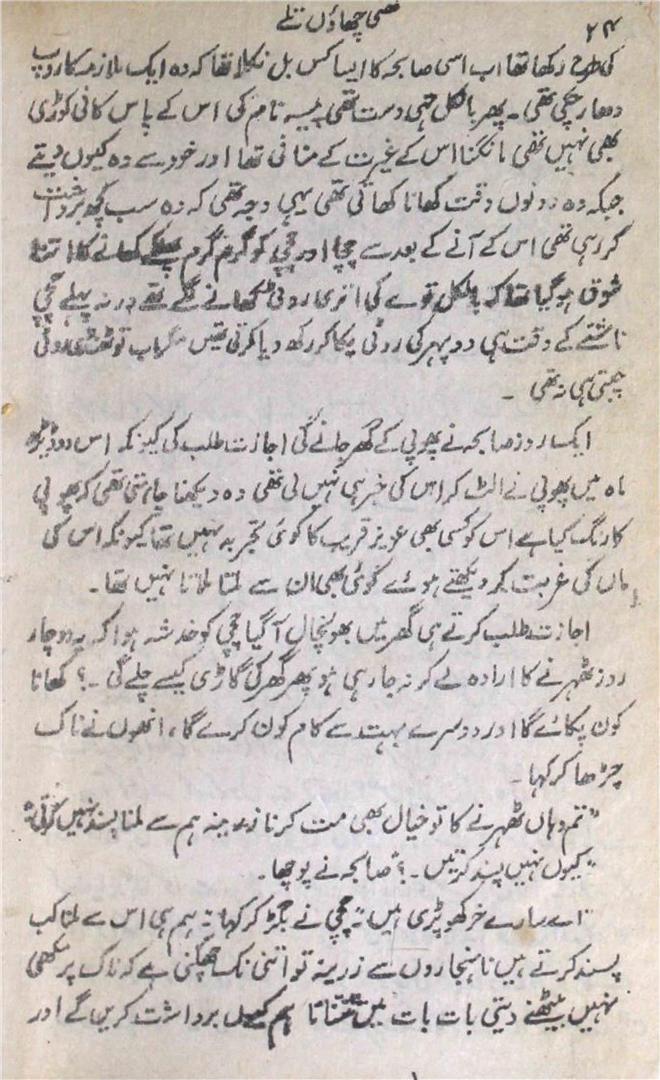 گھنی چھاؤں تلے
۲۴
کی طرح رکھا تھا اب اسی صابحہ کا ایسا کس بل نکلا تھا کہ وہ ایک ملازمہ کا روپ
دھار چکی تھی ۔ پھر بالکل تہی دست تھی پیسہ نام کی اس کے پاس کانی کوڑی
بھی نہیں تھی مانگنا اس کے غیرت کے منافی تھا اور خود سے وہ کیوں دیتے
جبکہ وہ دونوں وقت کھانا کھاتی تھی یہی وجہ تھی کہ وہ سب کچھ برداشت
کر رہی تھی اس کے آنے کے بعد سے چچا اور چچی کو گرم گرم پھلکے کھانے کا اتنا
شوق ہو گیا تھا کہ بالکل توے کی اتری روٹی کھانے لگے تھے ورنہ پہلے چچی
ناشتے کے وقت ہی دوپہر کی روٹی پکا کر رکھ دیا کرتی تھیں مگر اب تو ٹھنڈی روٹی
چبتی ہی نہ تھی ۔
ایک روز صابحہ نے پھوپی کے گھر جانے کی اجازت طلب کی کیونکہ اس دو ڈیڑھ
ماہ میں پھوپی نے الٹ کر اس کی خبر ہی نہیں لی تھی وہ دیکھنا چاہتی تھی کہ پھوپی
کا رنگ کیا ہے اس کو کسی بھی عزیز قریب کا کوئی تجربہ نہیں تھا کیونکہ اس کی
ماں کی غربت کو دیکھتے ہوئے کوئی بھی ان سے ملتا ملاتا نہیں تھا ۔
اجازت طلب کرتے ہی گھر میں بھونچال آگیا چچی کو خدشہ ہوا کہ یہ دو چار
روز ٹھہرنے کا ارادہ لے کر نہ جا رہی ہو پھر گھر کی گاڑی کیسے چلے گی ۔؟ کھانا
کون پکائے گا اور دوسرے بہت سے کام کون کرے گا، انھوں نے ناک
چڑھا کر کہا ۔
"تم وہاں ٹھہرنے کا تو خیال بھی مت کرنا زرینہ ہم سے ملنا پسند نہیں کرتی"
"کیوں نہیں پسند کرتیں ۔؟" صابحہ نے پوچھا ۔
"اے ہمارے خر کھوپڑی ہیں" چچی نے بگڑ کر کہا "ہم ہی اس سے ملنا کب
پسند کرتے ہیں ناہنجاروں سے زرینہ تو اتنی نک چھکنی ہے کہ ناک پر مکھی
نہیں بیٹھنے دیتی بات بات میں تنتنانا ہم کیوں برداشت کریں گے اور